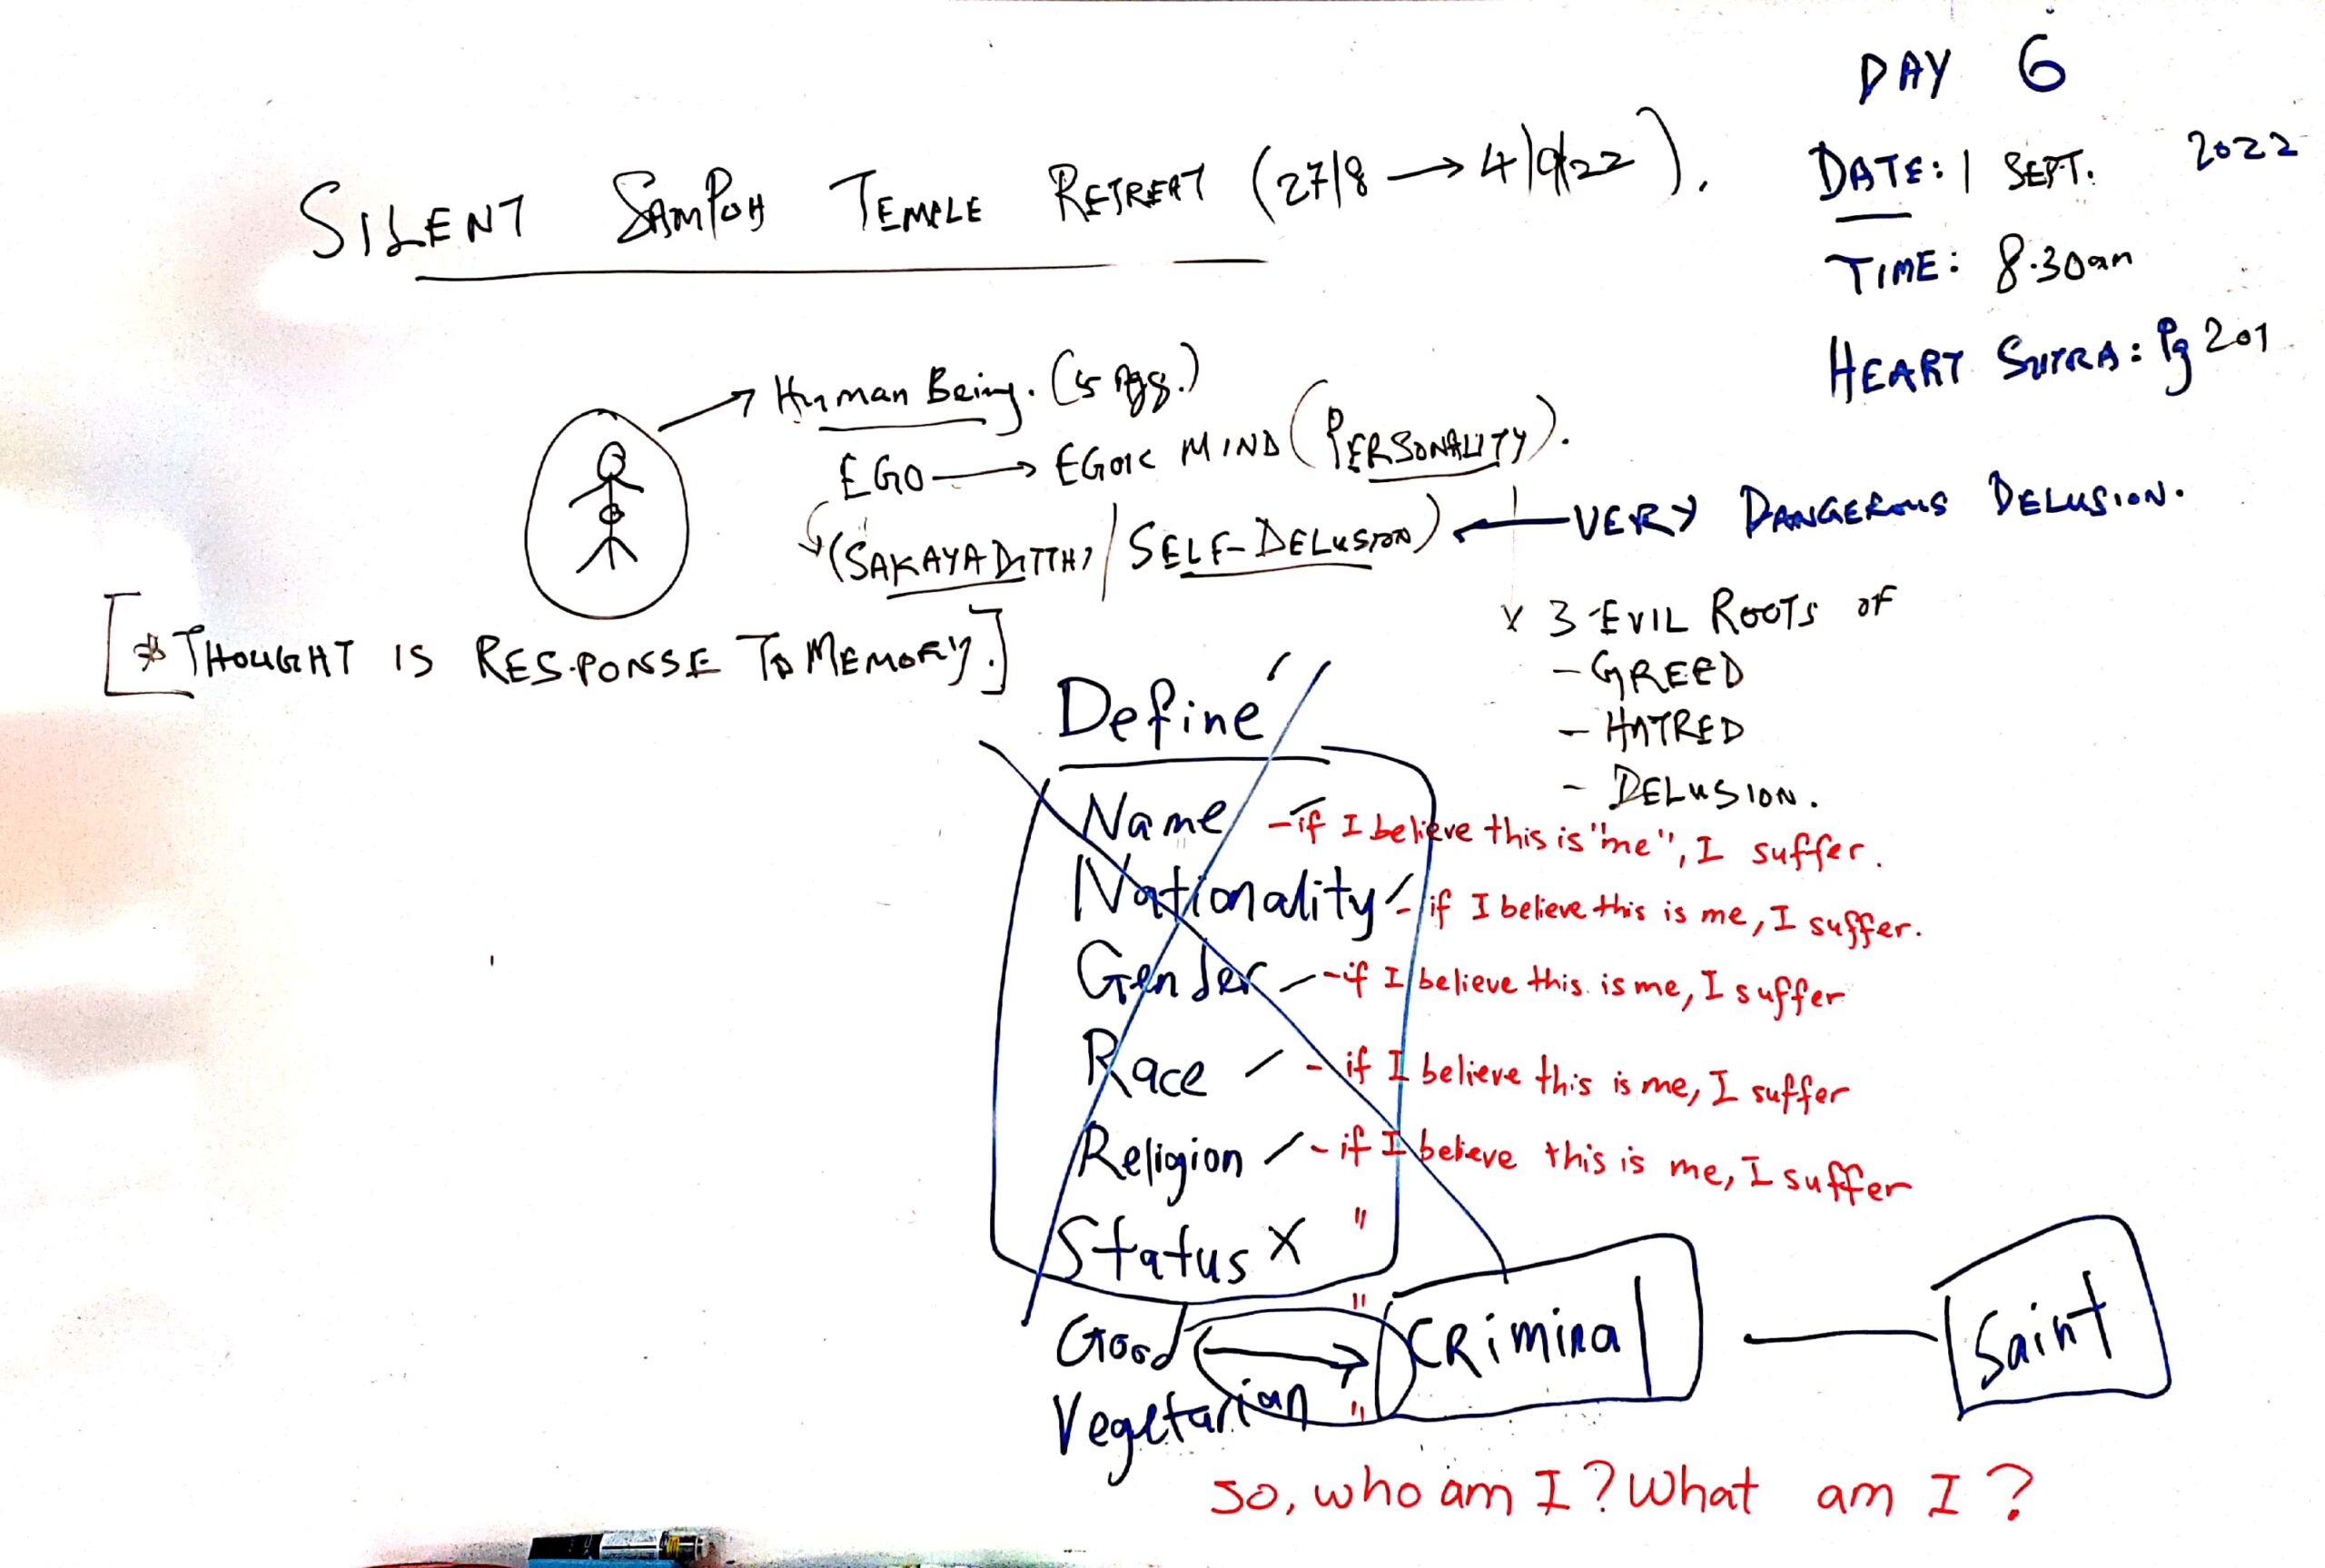 DAY 6
SILENT SAMPOH TEMPLE RETREAT (27/8 → 4/9/22).
DATE: 1 SEPT. 2022
TIME: 8.30am
HEART SUTRA: Pg 201
Human Being. (5 Agg.)
EGO → EGOIC MIND (PERSONALITY).
(SAKAYADITTHI / SELF-DELUSION) ← VERY DANGEROUS DELUSION.
[* THOUGHT IS RESPONSE TO MEMORY.]
x 3 EVIL ROOTS OF
- GREED
- HATRED
- DELUSION.
Define
Name - if I believe this is "me", I suffer.
Nationality - if I believe this is me, I suffer.
Gender - if I believe this is me, I suffer
Race - if I believe this is me, I suffer
Religion - if I believe this is me, I suffer
Status x "
Good → " CRiminal — Saint
Vegetarian "
So, who am I? What am I?